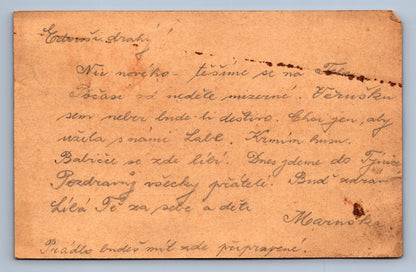 drahý!
Nic nového - těšíme se na Tebe.
Počasí od neděle mizerné. Věrušku
sem neber bude-li deštivo. Chci jen, aby
užila s námi Labe. Krmím husu.
Babičce se zde líbí. Dnes jdeme do Týnice
Pozdravuj všecky přátele. Buď zdráv
Líbá Tě za sebe a děti
Maruška
Prádlo budeš mít zde připravené.